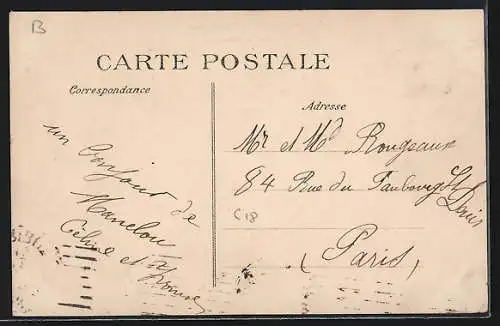 B
CARTE POSTALE
Correspondance
un bonjour de
Céline et
Adresse
Mr et Md Rougeaux
84 Rue du Faubourg St
Denis
C18
(Paris)